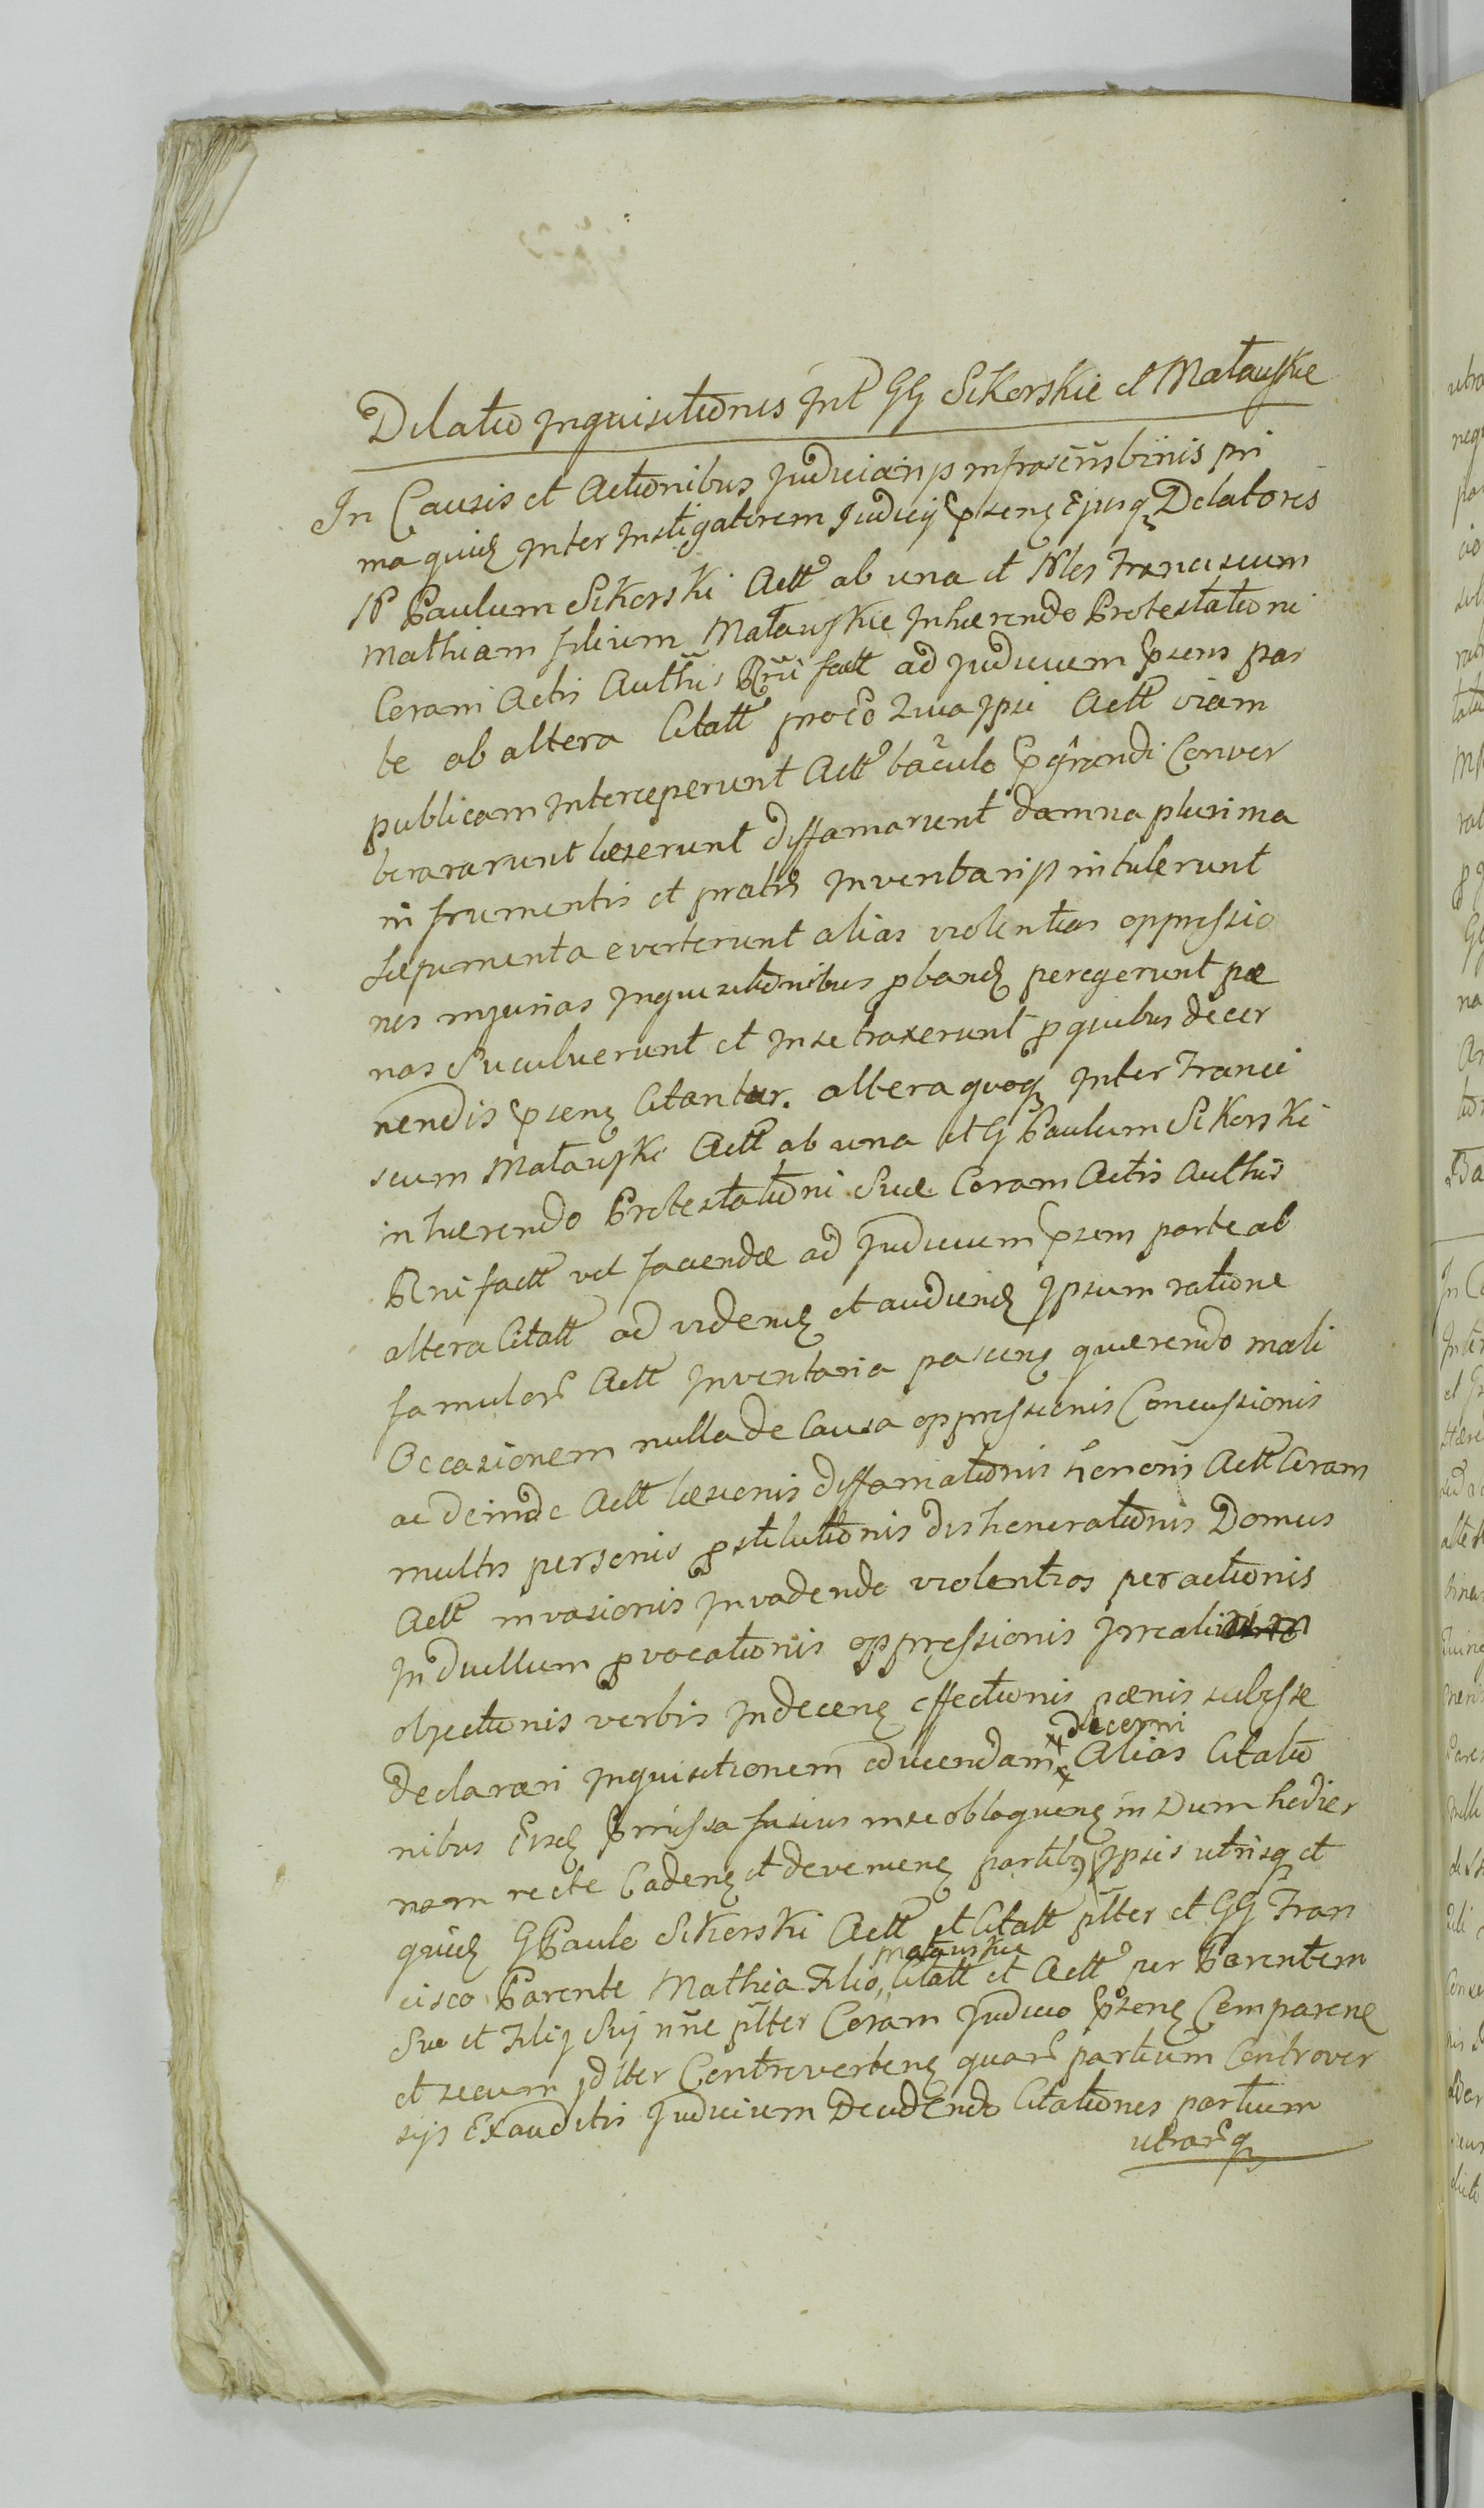 Dilatio Inquisitionis Int GG Sikorskie et Matauskie
In Causis et Actionibus Judiciarijs infrascris binis pri
ma quid Inter Instigatorem Judicij Psens Ejusq Delatores
N Paulum Sikorski Actt ab una et Nles Franciscum
Mathiam filium Matauskie Inhærendo Protestationi
Coram Actis Authis Rni fact ad Judicium Psens par
te ab altera Citatt pro eo quia Ipsi Actt viam
publicam Interceperunt Actt baculo Pgrandi Conver
berararunt læserunt diffamarunt damna plurima
in frumentis et pratis Inventarijs intulerunt
sæpimenta everterunt alias violentias oppressio
nes injurias Inquisitionibus pband peregerunt pæ
nas Succubuerunt et In se traxerunt p quibus decer
nendis Psens Citantur. altera quoq Inter Franci
scum Matauski Actt ab una et G Paulum Sikorski
inhærendo Protestationi Suæ Coram Actis Authis
Rni factt vel faciendæ ad Judicium Psens parte ab
altera Citatt ad vidend et audiend Ipsum ratione
famulor Actt Inventaria pascens quærendo mali
Occasionem nulla de Causa oppressionis Concussionis
ac deinde Actt læsionis diffamationis honoris Actt Coram
multis personis pstitutionis dishonorationis Domus
Actt invasionis Invadendo violentias peractionis
In duellum pvocationis oppressionis
objectionis verbis Indecens effectionis pænis subesse
declarari Inquisitionem educendam decerni Alias Citatio
nibus Eisd Pmissa fusius in se obloquens in Dum hodier
nam recte Cadens et deveniens partibus Ipsis utrisq et
quid G Paulo Sikorski Actt et Citatt plter et GG Fran
cisco Parente Mathia Filio Matauskie Citatt et Actt per Parentem
Suo et Filij Sui nne plter Coram Judicio Psens Comparens
et secum Jdlter Controvertens quar partium Controver
sijs Exauditis Judicium Decidendo Citationes partium
utrarq